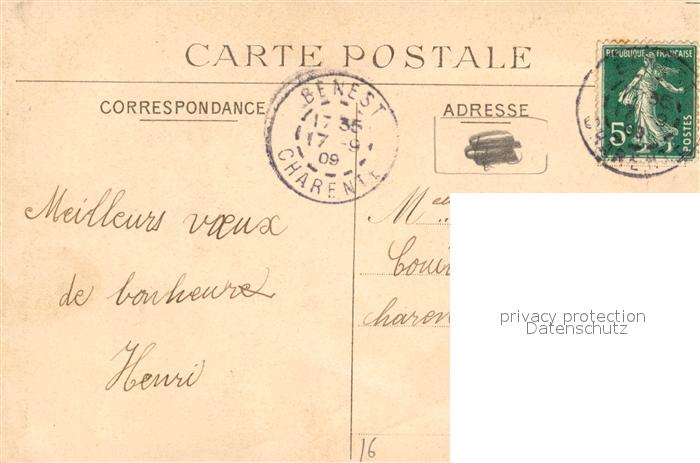 CARTE POSTALE
CORRESPONDANCE
ADRESSE
BENEST
17 35
17 -9
09
CHARENTE
REPUBLIQUE FRANÇAISE
5
POSTES
Meilleurs vœux
de bonheure
Henri
Melle
charen
privacy protection
Datenschutz
16